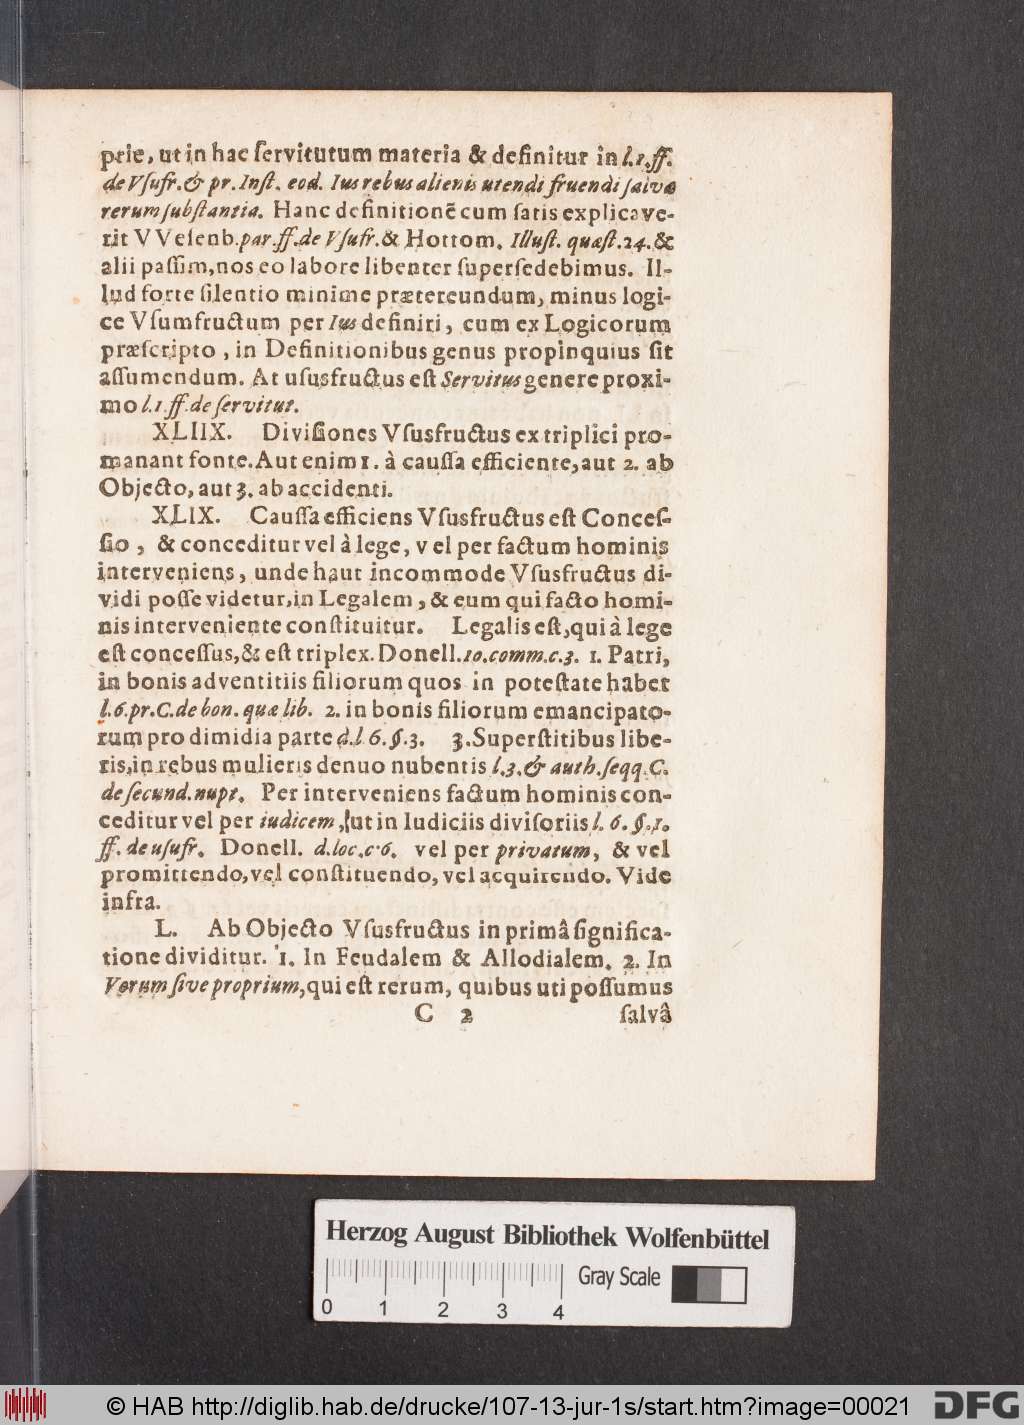 prie, ut in hac ſervitutum materia & definitur in l.1.ff.
de Vſufr. & pr. Inſt. eod. Ius rebus alienis utendi fruendi ſalva
rerum ſubſtantia. Hanc definitionē cum ſatis explicave-
rit VVeſenb. par. ff. de Vſufr. & Hottom. Illuſt. quæſt. 24. &
alii paſſim, nos eo labore libenter ſuperſedebimus. Il-
lud forte ſilentio minime prætereundum, minus logi-
ce Vſumfructum per Ius definiri, cum ex Logicorum
præſcripto, in Definitionibus genus propinquius ſit
aſſumendum. At uſusfructus eſt Servitus genere proxi-
mo l.1 ff. de ſervitut.
XLIIX. Diviſiones Vſusfructus ex triplici pro-
manant fonte. Aut enim 1. à cauſſa efficiente, aut 2. ab
Objecto, aut 3. ab accidenti.
XLIX. Cauſſa efficiens Vſusfructus eſt Conceſ-
ſio, & conceditur vel à lege, vel per factum hominis
interveniens, unde haut incommode Vſusfructus di-
vidi poſſe videtur, in Legalem, & eum qui facto homi-
nis interveniente conſtituitur. Legalis eſt, qui à lege
eſt conceſſus, & eſt triplex. Donell. 10. comm. c. 3. 1. Patri,
in bonis adventitiis filiorum quos in poteſtate habet
l.6. pr. C. de bon. quæ lib. 2. in bonis filiorum emancipato-
rum pro dimidia parte d.l 6. §. 3. 3. Superſtitibus libe-
ris, in rebus mulieris denuo nubentis l.3. & auth. ſeqq. C.
de ſecund. nupt. Per interveniens factum hominis con-
ceditur vel per iudicem, ut in Iudiciis diviſoriis l. 6. §. 1.
ff. de uſufr. Donell. d. loc. c. 6. vel per privatum, & vel
promittendo, vel conſtituendo, vel acquirendo. Vide
infra.
L. Ab Objecto Vſusfructus in primâ ſignifica-
tione dividitur. 1. In Feudalem & Allodialem. 2. In
Verum ſive proprium, qui eſt rerum, quibus uti poſſumus
C 2 ſalvâ
Herzog August Bibliothek Wolfenbüttel
Gray Scale
0 1 2 3 4
© HAB http://diglib.hab.de/drucke/107-13-jur-1s/start.htm?image=00021
DFG